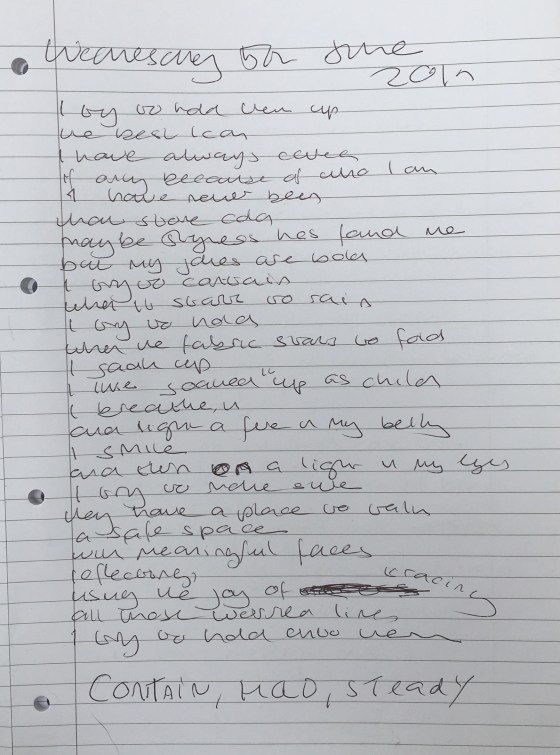 Wednesday 5th June
2019
I try to hold them up
the best I can
I have always cared
if only because of who I am
I have never been
that stone cold
maybe shyness has found me
but my jokes are bold
I try to contain
when it starts to rain
I try to hold
when the fabric starts to fold
I soak up
I like soaked up as child
I breathe in
and light a fire in my belly
I smile
and turn on a light in my eyes
I try to make sure
they have a place to talk
a safe space
with meaningful faces
reflecting,
using the joy of tracing
all those worried lines
I try to hold onto them
CONTAIN, HOLD, STEADY